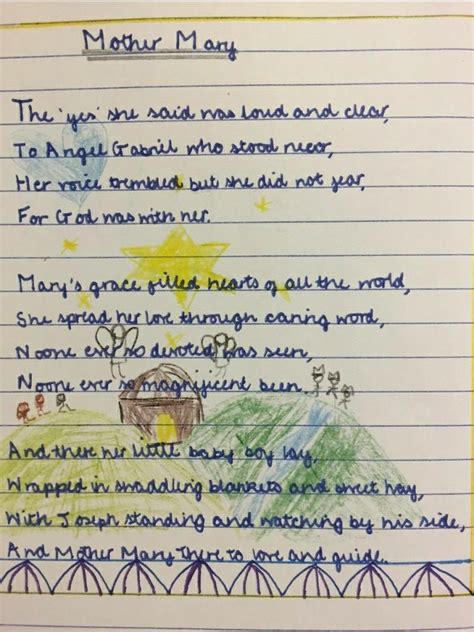 Mother Mary
The 'yes' she said was loud and clear,
To Angel Gabriel who stood near,
Her voice trembled but she did not fear,
For God was with her.
Mary's grace filled hearts of all the world,
She spread her love through caring word,
Noone ever so devoted was seen,
Noone ever so magnificent been.
And there her little baby boy lay,
Wrapped in swaddling blankets and sweet hay,
With Joseph standing and watching by his side,
And Mother Mary there to love and guide.